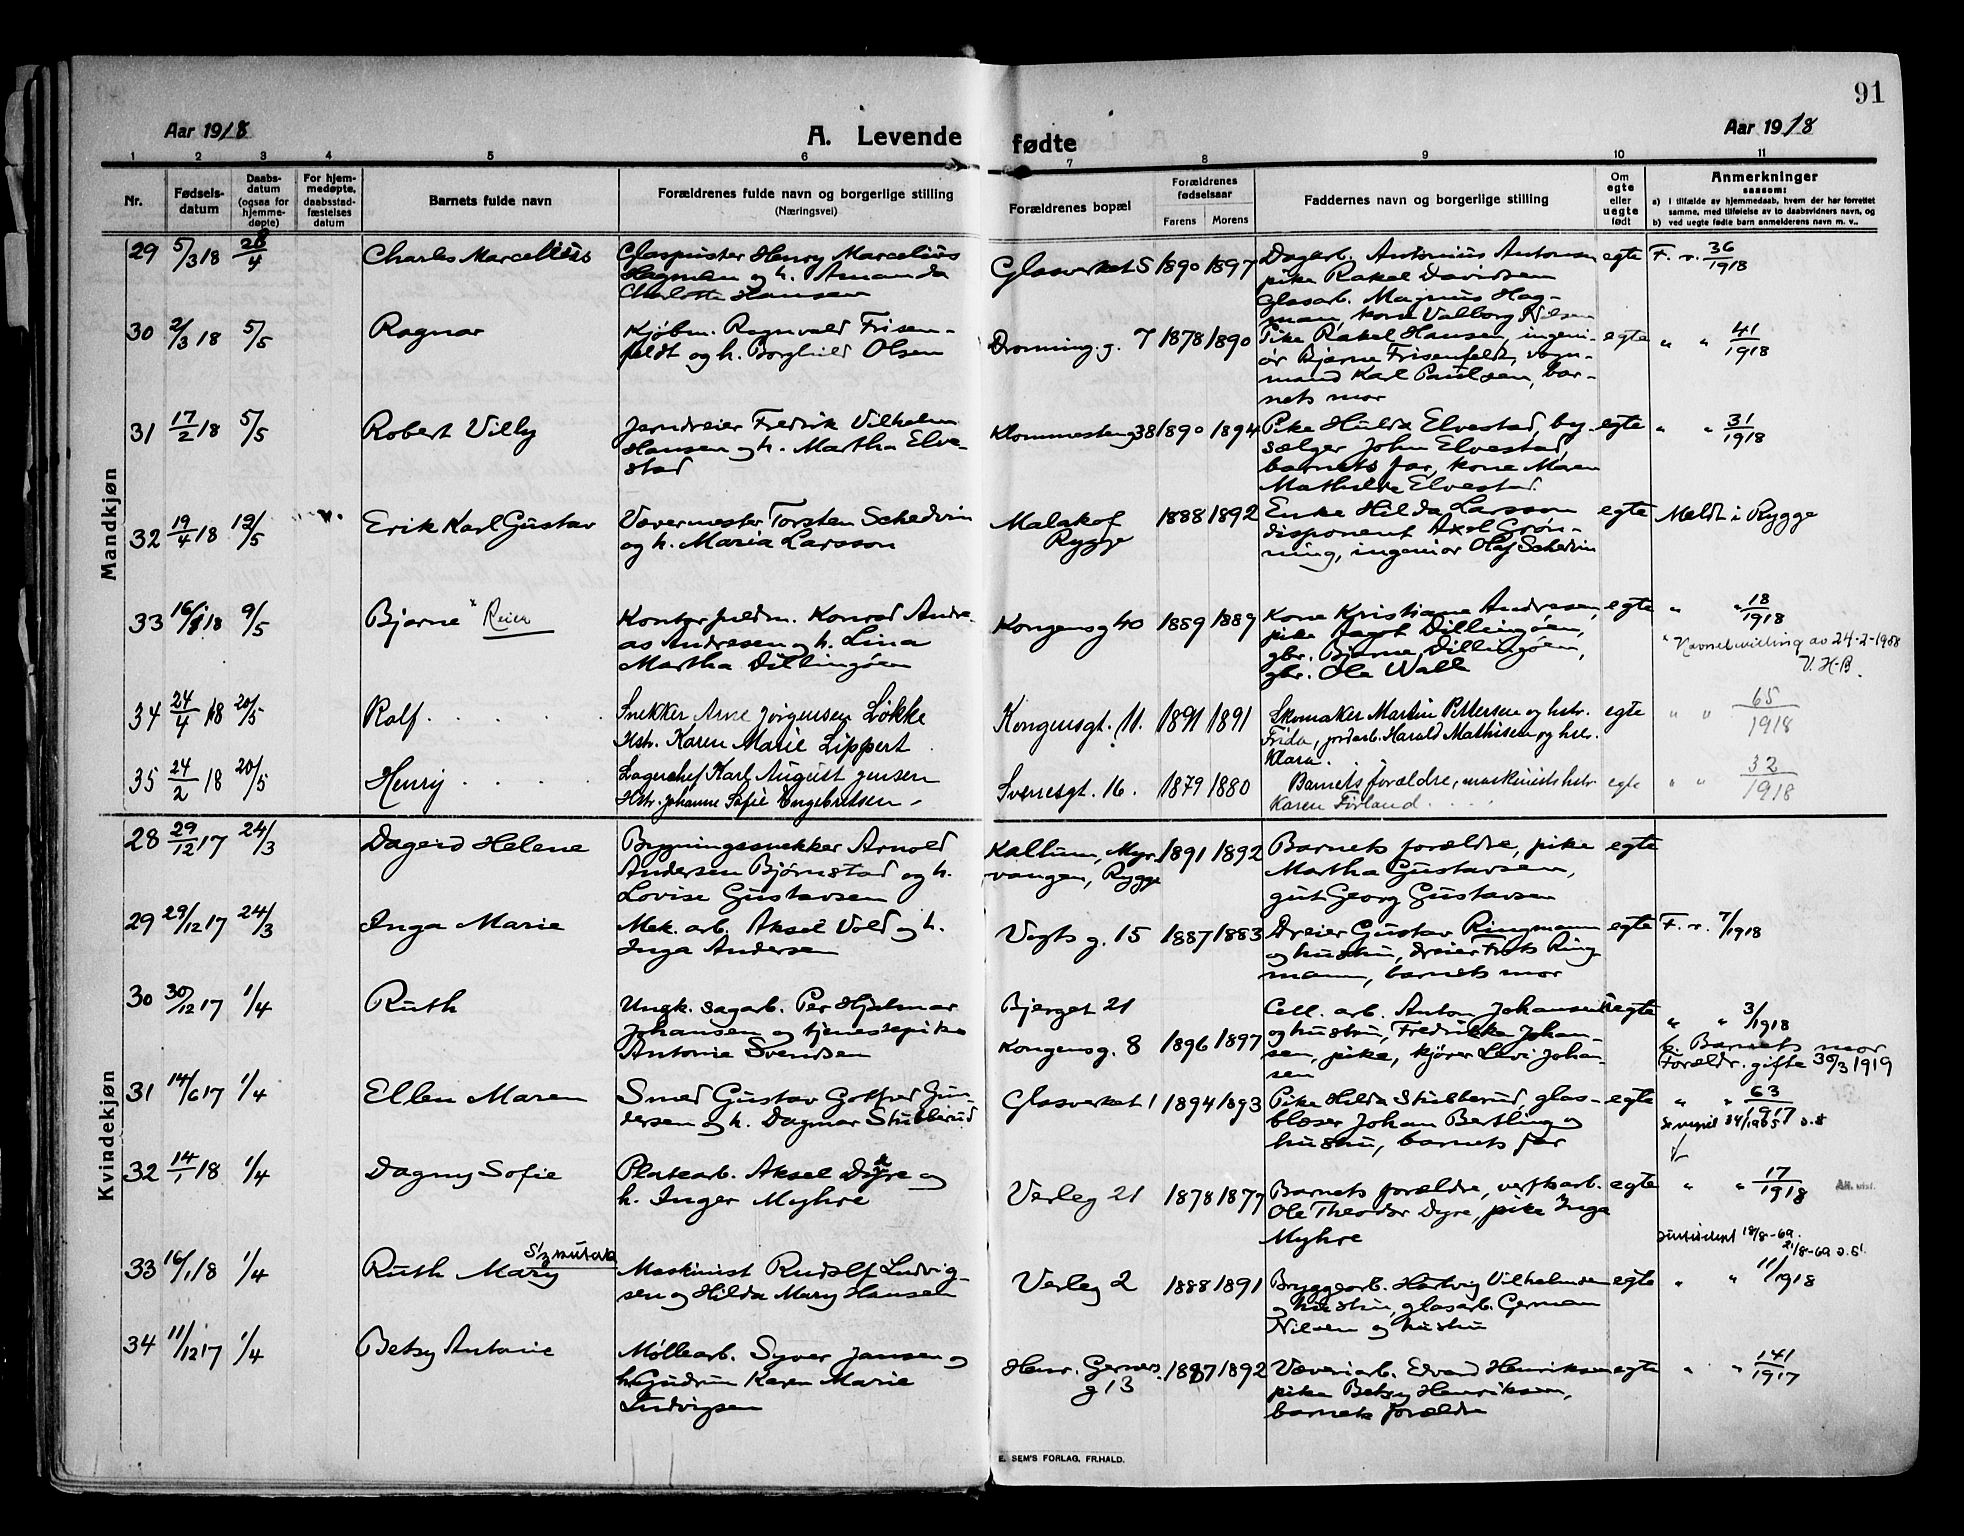 91
Aar 1918
A. Levende fødte
Aar 1918
1 2 3 4 5 6 7 8 9 10 11
Nr.
Fødselsdatum
Daabsdatum (ogsaa for hjemmedøpte)
For hjemmedøpte, daabsstadfæstelses datum
Barnets fulde navn
Forældrenes fulde navn og borgerlige stilling
(Næringsvei)
Forældrenes bopæl
Forældrenes fødselsaar
Farens Morens
Faddernes navn og borgerlige stilling
Om egte eller uegte født
Anmerkninger
saasom:
a) i tilfælde av hjemmedaab, hvem der har forrettet samme, med tilføielse av to daabsvidners navn, og
b) ved uegte fødte barn anmelderens navn m. v..
Mandkjøn
29 5/3 18 28/4 Charles Marcelius Glaspuster Henry Marcelius Glasverket 5 1890 1897 Dagarb. Antonius Antonsen egte F. r. 36/1918
Hagman og h. Amanda pike Rakel Davidsen
Charlotte Hansen glasarb. Magnus Hag-
man, kone Valborg Nilsen
30 2/3 18 5/5 Ragnar Kjøbm. Ragnvald Frisen- Dronning. g. 7 1878 1890 Pike Rakel Hansen, ingeni- egte " " 41/1918
feldt og h. Borghild Olsen ør Bjarne Frisenfeldt, vogn-
mand Karl Paulsen, bar-
nets mor
31 17/2 18 5/5 Robert Villy Jerndreier Fredrik Vilhelm Klommesteng 38 1890 1894 Pike Hulda Elvestad, by- egte " " 31/1918
Hansen og h. Martha Elve- sælger John Elvestad,
stad barnets far, kone Maren
Mathilde Elvestad.
32 19/4 18 12/5 Erik Karl Gustav Vævermester Torsten Schedvin Malakof 1888 1892 Enke Hilda Larsson egte Meldt i Rygge
og h. Maria Larsson Rygge disponent Axel Grøn-
ning, ingeniør Olaf Schedvin
33 16/1 18 9/5 Bjarne x Reier Kontorfuldm. Konrad Andre- Kongensg 40 1889 1889 Kone Kristiane Andresen, egte " " 18/1918
as Andresen og h. Lina pike Dillingøen,
Martha Dillingøen gbr. Bjarne Dillingøen,
gbr. Ole Wall
x Navnebevilling av 24-2-1908
V. H-B.
34 24/4 18 20/5 Rolf Snekker Arne Jørgensen Løkke Kongensgt. 11. 1891 1891 Skomaker Martin Pettersen og hstr. egte " " 65/1918
Hstr. Karen Marie Lippert Frida, jordarb. Harald Mathisen og hstr.
Klara.
35 24/2 18 20/5 Henry Lagerchef Karl August Jensen Sverresgt. 16. 1879 1880 Barnets forældre, maskinists hstr egte " " 32/1918
Hstr. Johanne Sofie Engebretsen Karen Førland
Kvindekjøn
28 29/12 17 24/3 Dagerd Helene Bygningssnekker Arnold Kallum, Myr- 1891 1892 Barnets forældre, pike egte
Andersen Bjørnstad og h. vangen, Rygge Martha Gustavsen,
Lovise Gustavsen gut Georg Gustavsen
29 29/12 17 24/3 Inga Marie Mek. arb. Aksel Vold og h. Vogts g. 15 1887 1883 Dreier Gustav Ringmann egte F. r. 7/1918
Inga Andersen og hustru, dreier Frits Ring-
mann, barnets mor
30 30/12 17 1/4 Ruth Ungk. sagarb. Per Hjalmar Bjerget 21 Cell. arb. Anton Johansen uegte " " 3/1918
Johansen og tjenestepike Kongensg. 8 1896 1897 og hustru, Fredrikke Johan-
Antonie Svendsen sen, pike, kjører Levi Johan-
sen
b. Barnets mor
Forældr. gifte 30/3 1919
31 14/6 17 1/4 Ellen Maren Smed Gustav Gotfred Gun- Glasverket 1 1894 1893 Pike Hilda Stubberud glas- egte " " 63/1917
dersen og h. Dagmar Stubberud blæser Johan Bertling og
hustru, barnets far
32 14/1 18 1/4 Dagny Sofie Platearb. Aksel Dyre og Verleg 21 1878 1877 Barnets forældre, verftsarb. egte " " 17/1918
h. Inger Myhre Ole Theodor Dyre, pike Inga
Myhre
33 16/1 18 1/4 Ruth Mary Maskinist Rudolf Ludvig- Verleg 2 1888 1891 Bryggearb. Hartvig Vilhelmsen egte " " 11/1918
sen og Hilda Mary Hansen og hustru, glasarb. German
Nilsen og hustru
34 11/12 17 1/4 Betsy Antonie Møllearb. Syver Jansen og Henr. Gerners. 1887 1892 Væveriarb. Edvard Henriksen egte " " 141/1917
h. Gudrun Karen Marie g 13 pike Betsy Henriksen,
Ludvigsen barnets forældre
E. SEM'S FORLAG, FR.HALD.